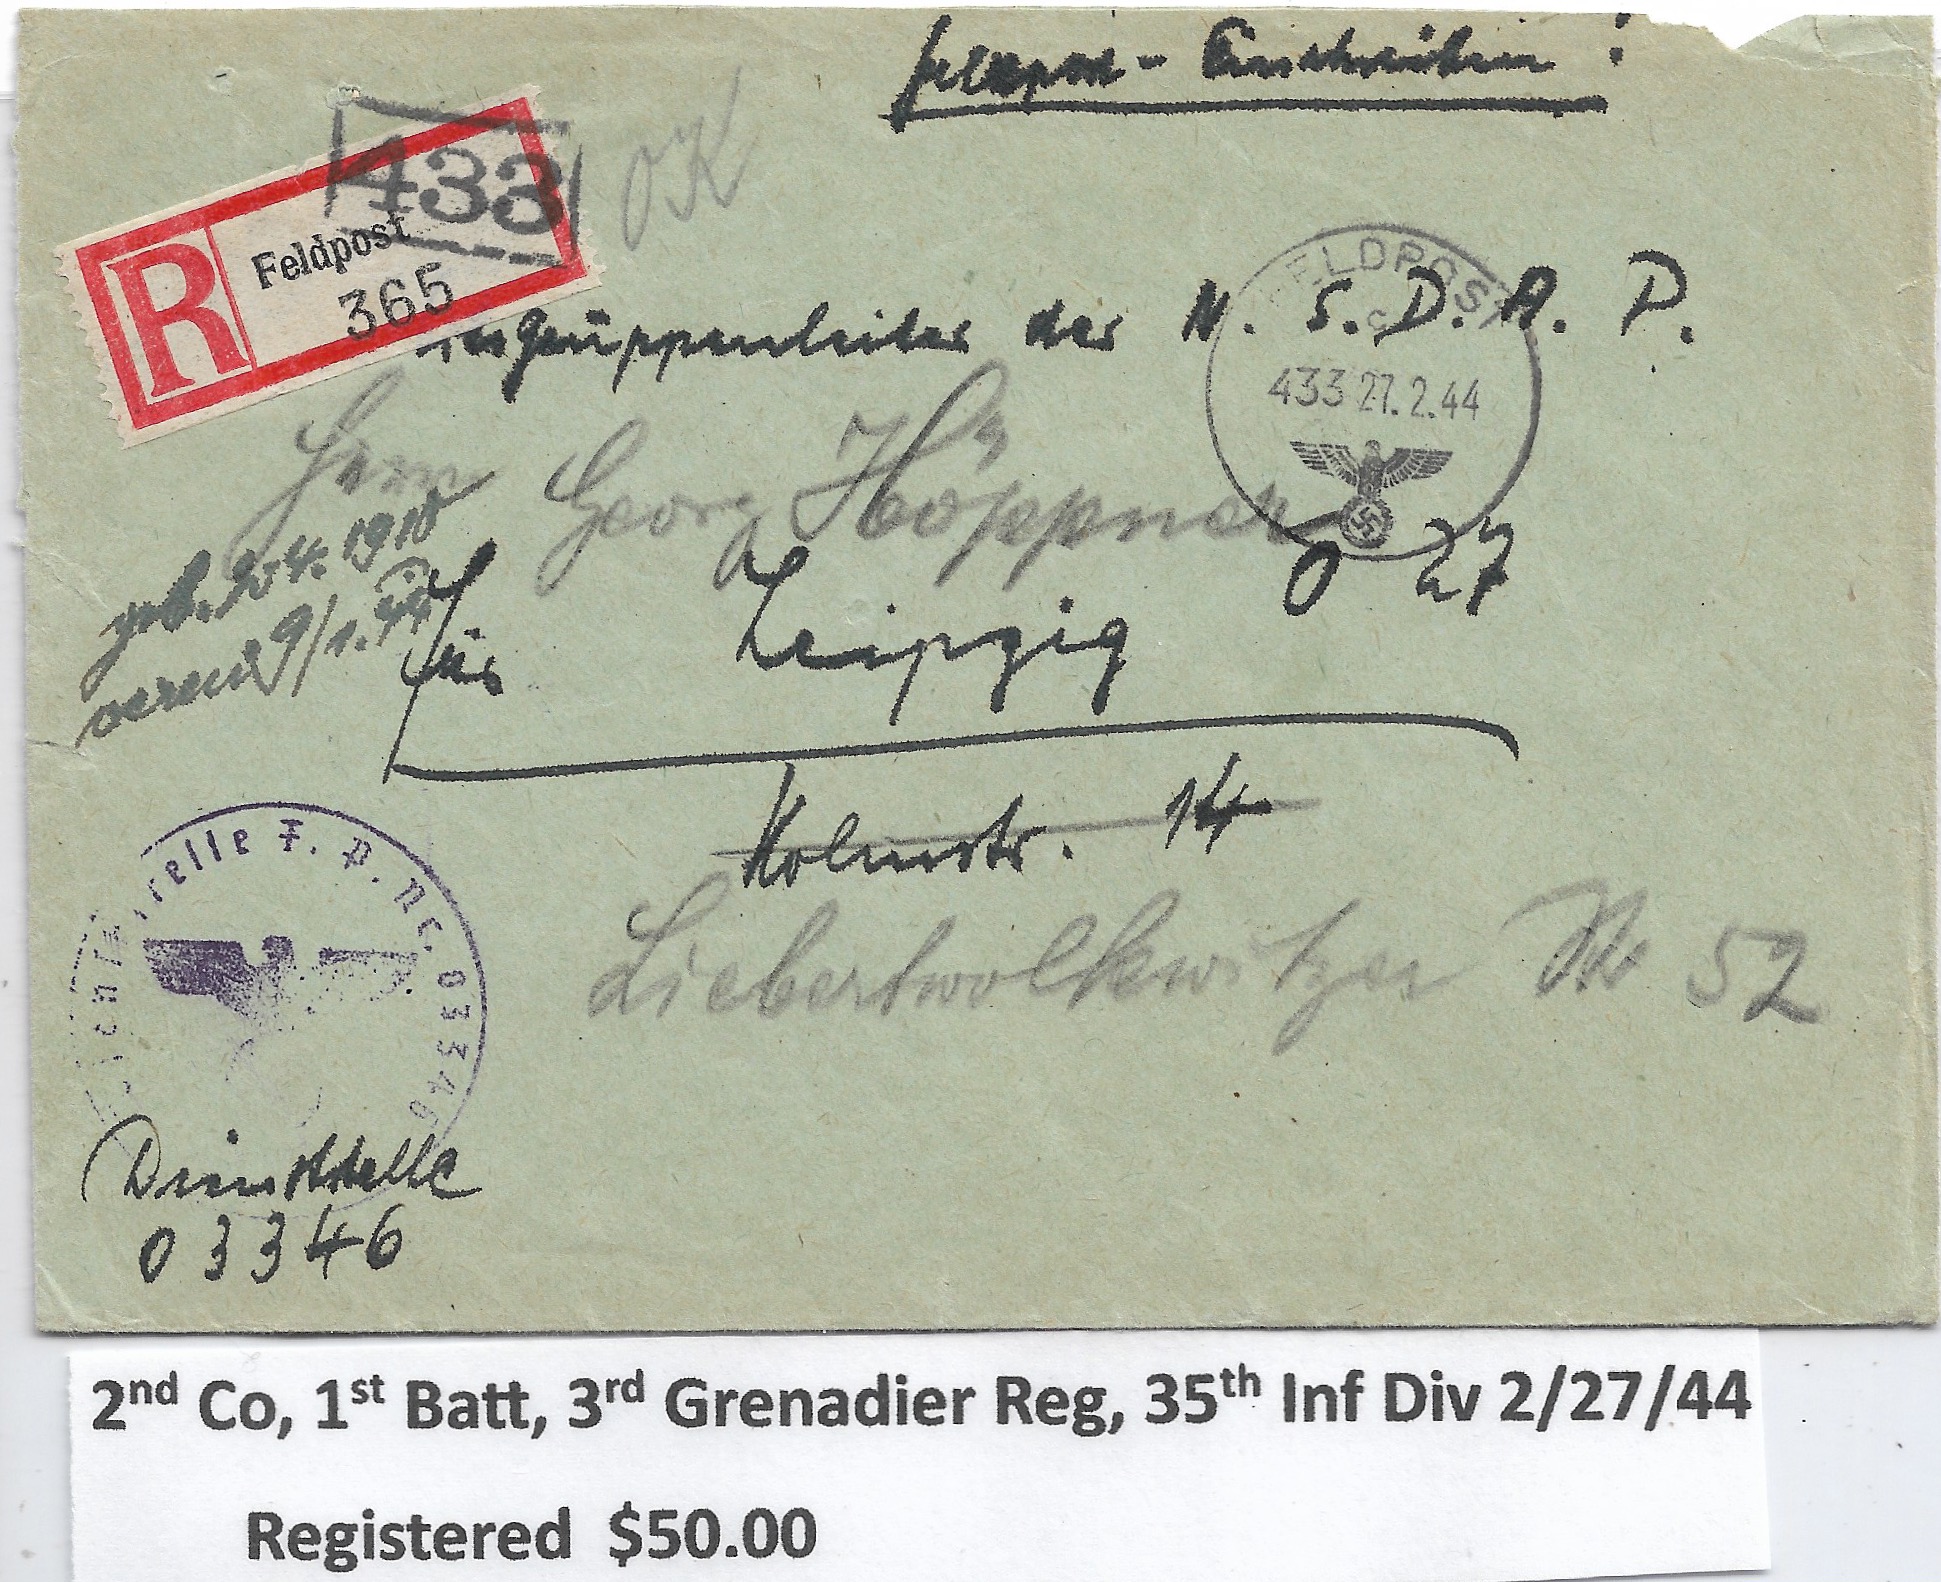 Feldpost - Einschreiben !
433
R
Feldpost
365
OK
FELDPOST
c
433 27.2.44
der N. S. D. A. P.
Herrn Georg Höppner
geb. 4. 1910
9/1.44
für Leipzig O 27
Holmstr. 14
Liebertwolkwitzer Nr 52
F. P. Nr. 03346
Dienststelle
03346
2nd Co, 1st Batt, 3rd Grenadier Reg, 35th Inf Div 2/27/44
Registered $50.00